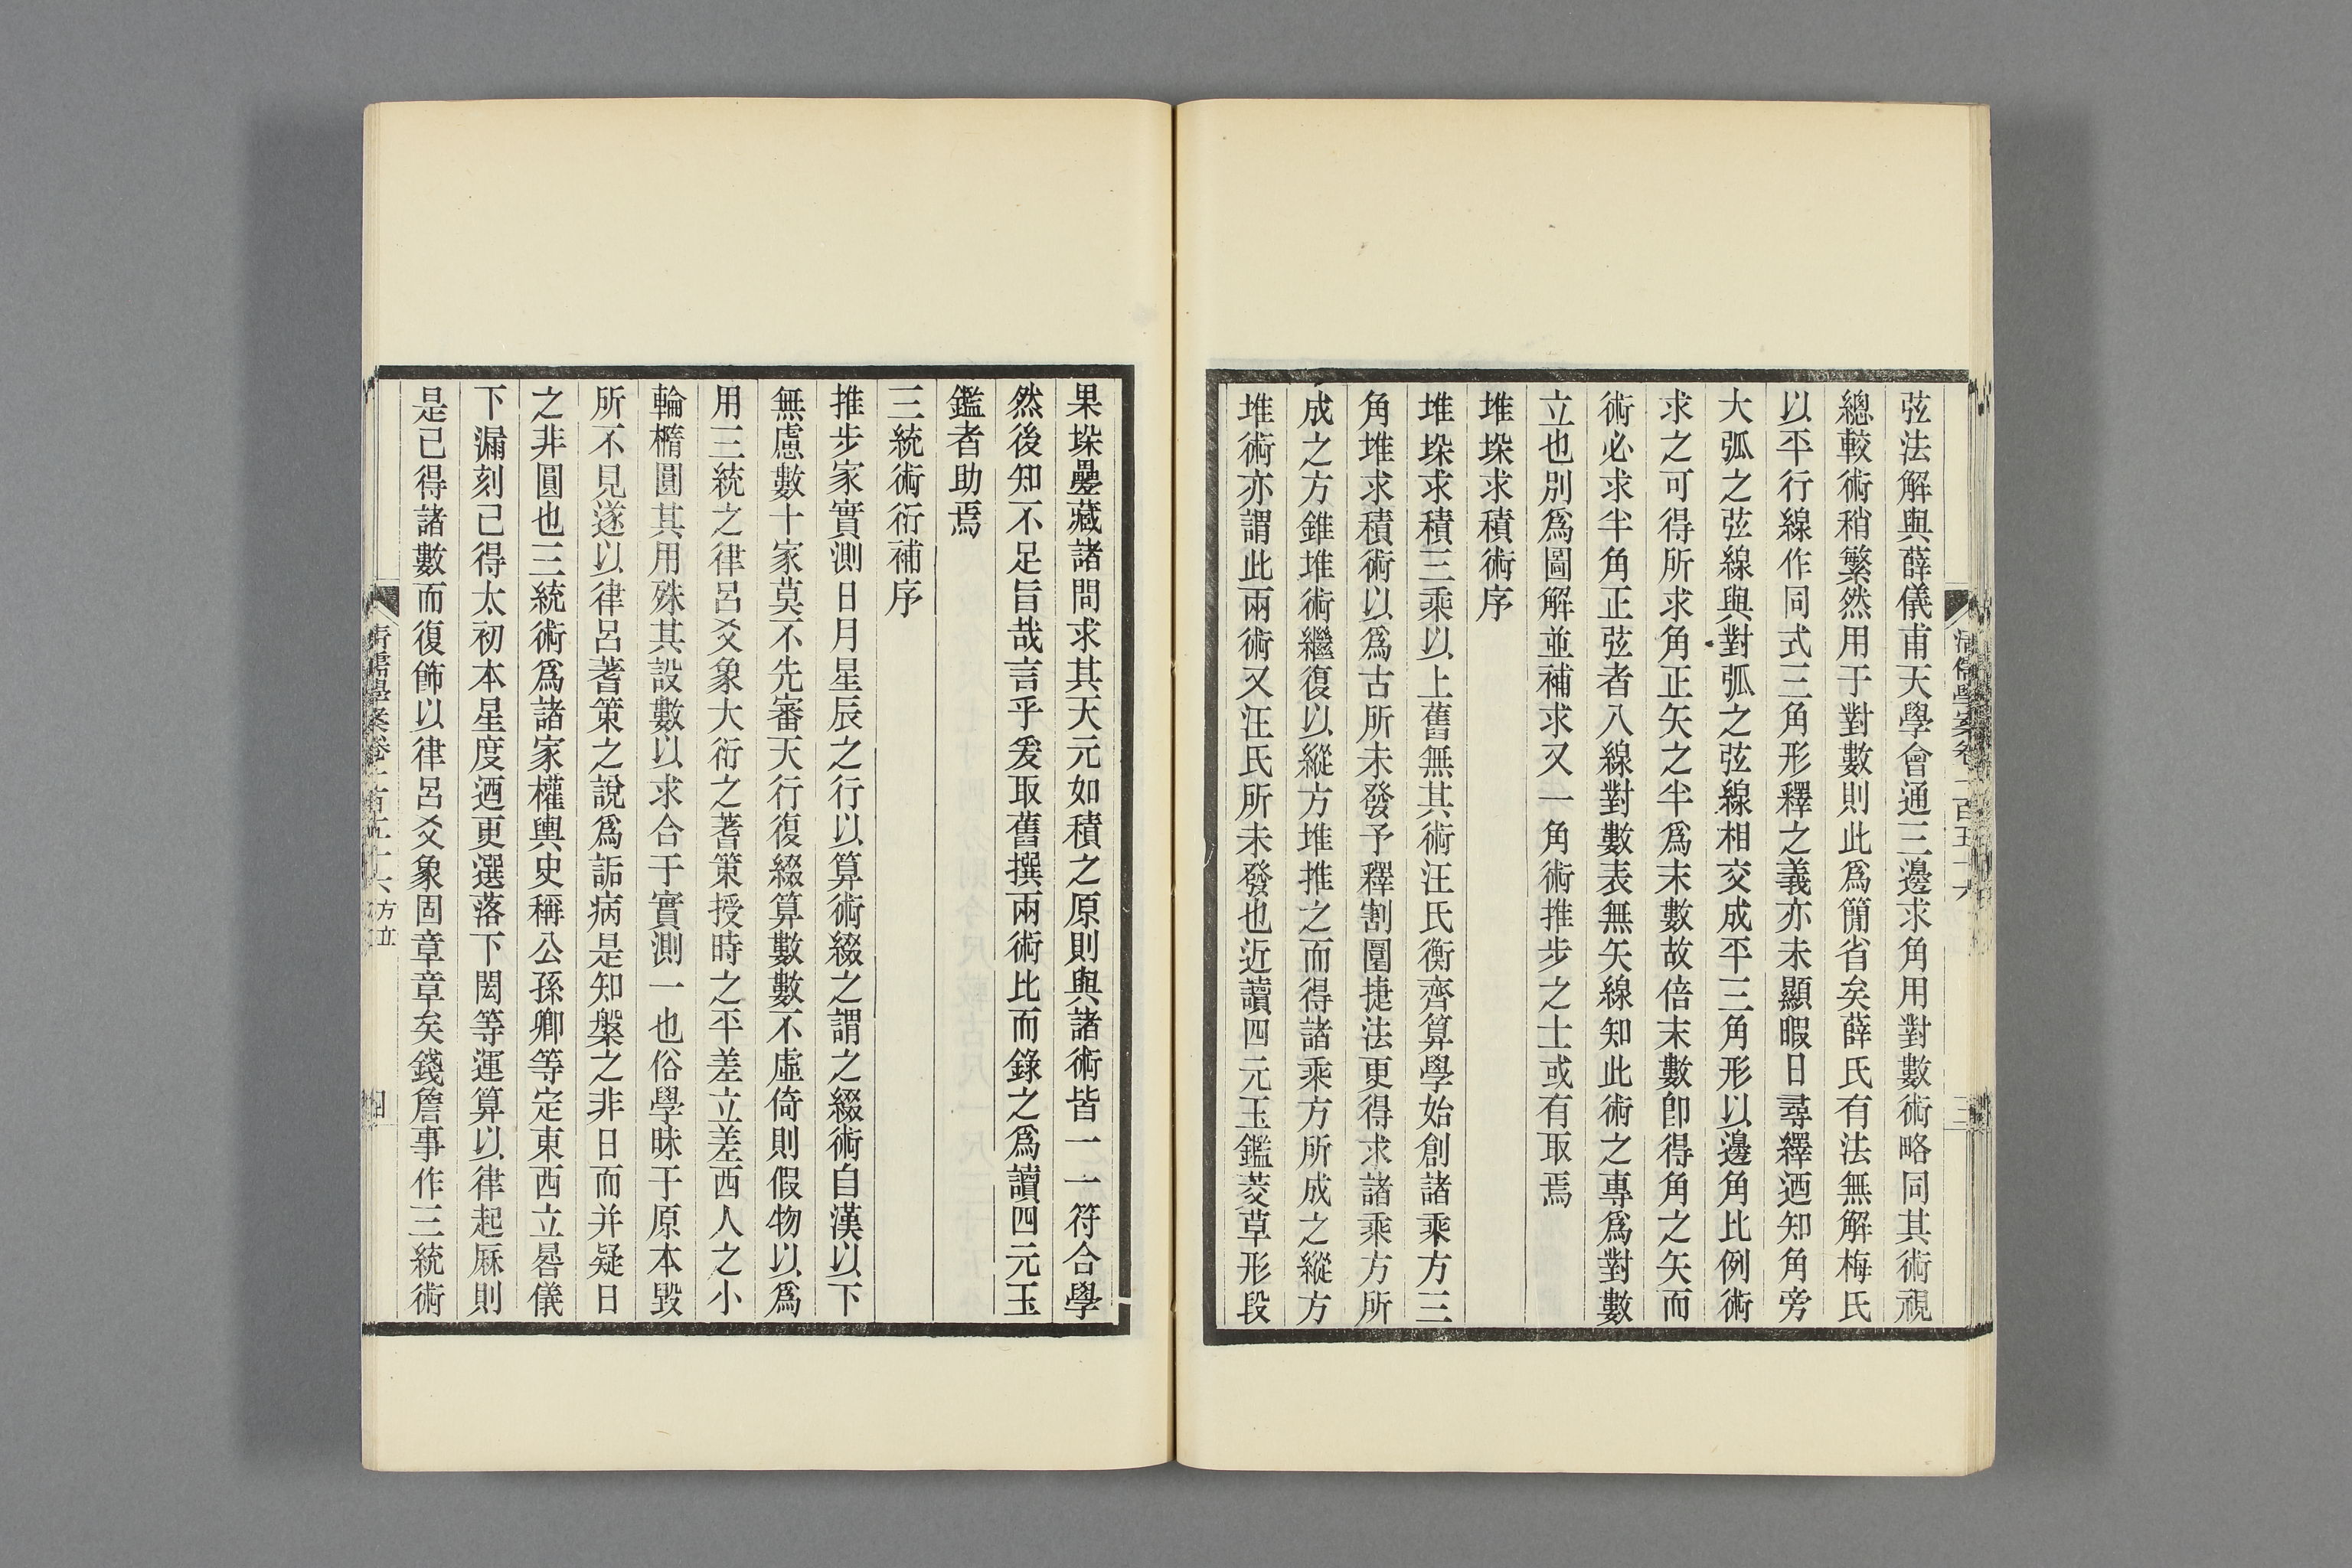 清儒學案卷一百五十六
三
弦法解與薛儀甫天學會通三邊求角用對數術略同其術視
總較術稍繁然用于對數則此爲簡省矣薛氏有法無解梅氏
以平行線作同式三角形釋之義亦未顯暇日尋繹迺知角旁
大弧之弦線與對弧之弦線相交成平三角形以邊角比例術
求之可得所求角正矢之半爲末數故倍末數卽得角之矢而
術必求半角正弦者八線對數表無矢線知此術之專爲對數
立也別爲圖解並補求又一角術推步之士或有取焉
堆垛求積術序
堆垛求積三乘以上舊無其術汪氏衡齊算學始創諸乘方三
角堆求積術以爲古所未發予釋割圜捷法更得求諸乘方所
成之方錐堆術繼復以縱方堆推之而得諸乘方所成之縱方
堆術亦謂此兩術又汪氏所未發也近讀四元玉鑑茭草形段
果垛疊藏諸問求其天元如積之原則與諸術皆一一符合學
然後知不足旨哉言乎爰取舊撰兩術比而錄之爲讀四元玉
鑑者助焉
三統術衍補序
推步家實測日月星辰之行以算術綴之謂之綴術自漢以下
無慮數十家莫不先審天行復綴算數數不虛倚則假物以爲
用三統之律呂爻象大衍之蓍策授時之平差立差西人之小
輪橢圓其用殊其設數以求合于實測一也俗學昧于原本毀
所不見遂以律呂蓍策之說爲詬病是知槃之非日而并疑日
之非圓也三統術爲諸家權輿史稱公孫卿等定東西立晷儀
下漏刻已得太初本星度迺更選落下閎等運算以律起厤則
是已得諸數而復飾以律呂爻象固章章矣錢詹事作三統術
清儒學案卷一百五十六 方立
四